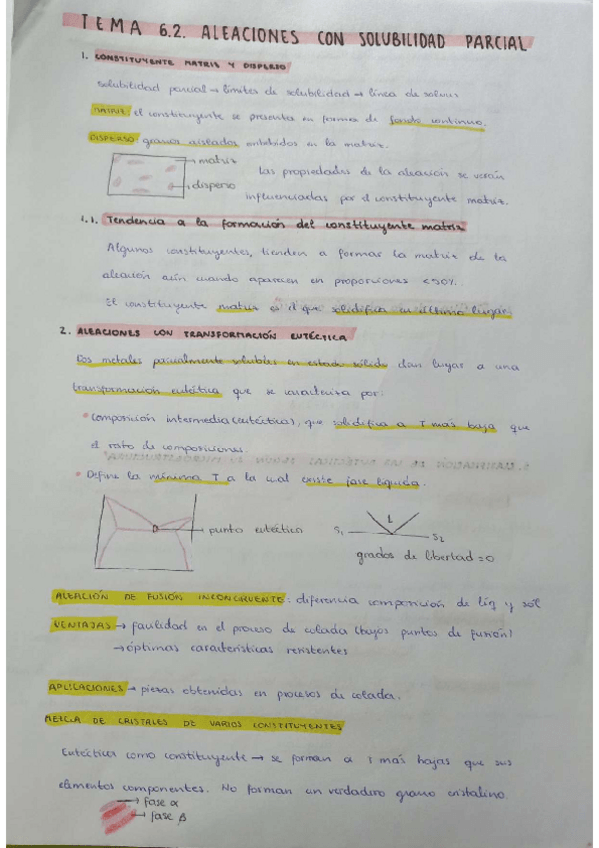 TEMA 6.2. ALEACIONES CON SOLUBILIDAD PARCIAL
1. CONSTITUYENTE MATRIZ Y DISPERSO
Solubilidad parcial → límites de solubilidad → línea de solvus
MATRIZ: el constituyente se presenta en forma de fondo continuo.
DISPERSO: granos aislados embebidos en la matriz.
→ matriz
→ disperso
Las propiedades de la aleación se verán
influenciadas por el constituyente matriz.
1.1. Tendencia a la formación del constituyente matriz
Algunos constituyentes, tienden a formar la matriz de la
aleación aún cuando aparecen en proporciones <50%.
El constituyente matriz es el que solidifica en último lugar.
2. ALEACIONES CON TRANSFORMACIÓN EUTÉCTICA
Dos metales parcialmente solubles en estado sólido dan lugar a una
transformación eutéctica que se caracteriza por:
• Composición intermedia (eutéctica), que solidifica a T más baja que
el resto de composiciones.
• Define la mínima T a la cual existe fase líquida.
→ punto eutéctico
S1 L S2
grados de libertad = 0
ALEACIÓN DE FUSIÓN INCONGRUENTE: diferencia composición de líq y sól
VENTAJAS → facilidad en el proceso de colada (bajos puntos de fusión)
→ óptimas características resistentes
APLICACIONES → piezas obtenidas en procesos de colada.
MEZCLA DE CRISTALES DE VARIOS CONSTITUYENTES
Eutéctica como constituyente → se forman a T más bajas que sus
elementos componentes. No forman un verdadero grano cristalino.
→ fase α
→ fase β